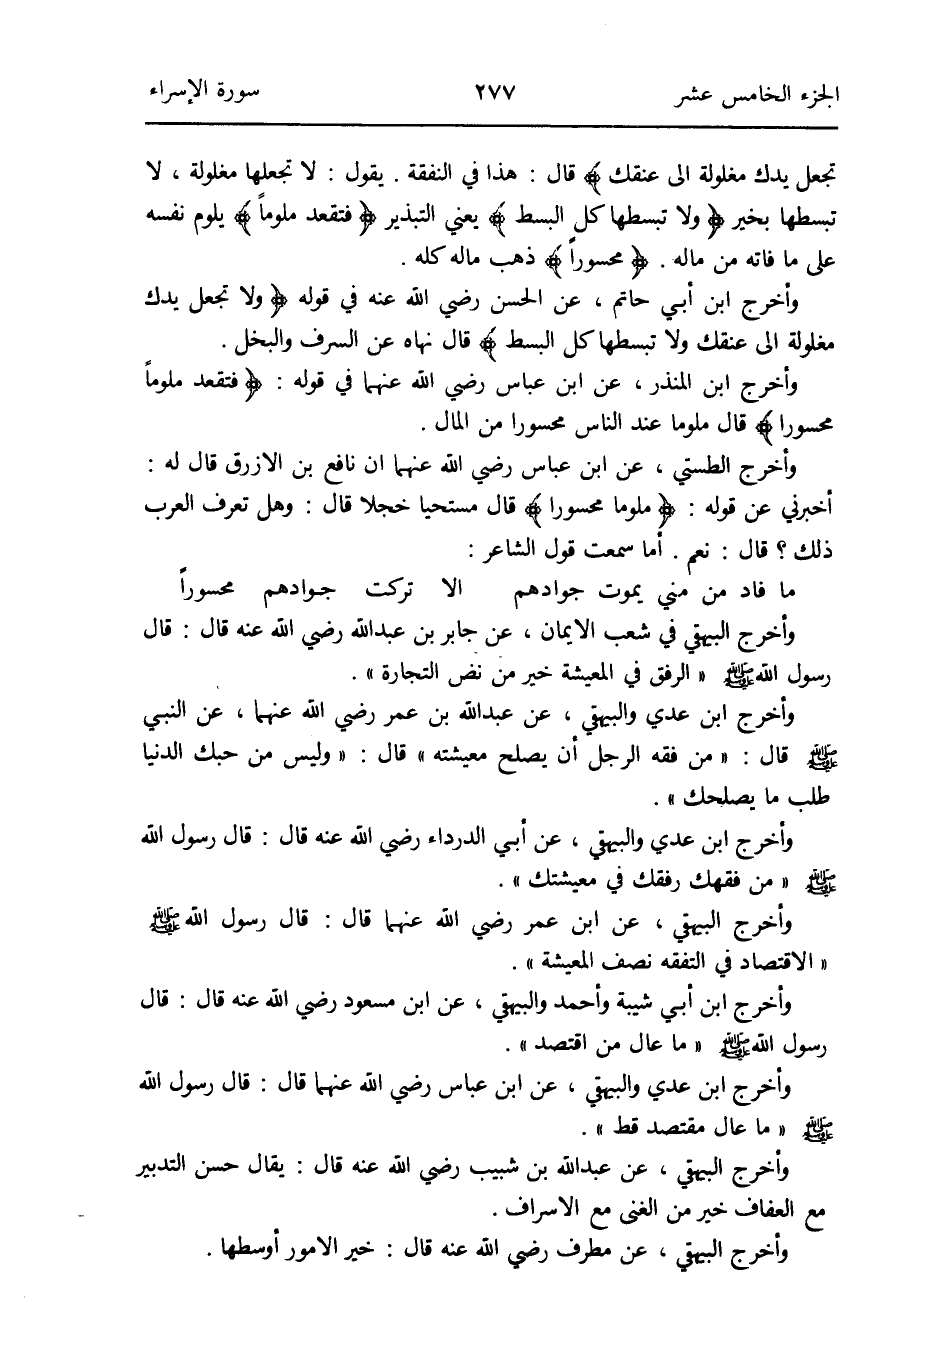 الجزء الخامس عشر ٢٧٧ سورة الإسراء
تجعل يدك مغلولة الى عنقك ﴾ قال : هذا في النفقة . يقول : لا تجعلها مغلولة ، لا
تبسطها بخير ﴿ ولا تبسطها كل البسط ﴾ يعني التبذير ﴿ فتقعد ملوماً ﴾ يلوم نفسه
على ما فاته من ماله . ﴿ محسوراً ﴾ ذهب ماله كله .
وأخرج ابن أبي حاتم ، عن الحسن رضي الله عنه في قوله ﴿ ولا تجعل يدك
مغلولة الى عنقك ولا تبسطها كل البسط ﴾ قال نهاه عن السرف والبخل .
وأخرج ابن المنذر ، عن ابن عباس رضي الله عنهما في قوله : ﴿ فتقعد ملوماً
محسورا ﴾ قال ملوما عند الناس محسورا من المال .
وأخرج الطستي ، عن ابن عباس رضي الله عنهما ان نافع بن الازرق قال له :
أخبرني عن قوله : ﴿ ملوما محسورا ﴾ قال مستحيا خجلا قال : وهل تعرف العرب
ذلك ؟ قال : نعم . أما سمعت قول الشاعر :
ما فاد من مني يموت جوادهم الا تركت جوادهم محسوراً
وأخرج البيهقي في شعب الايمان ، عن جابر بن عبدالله رضي الله عنه قال : قال
رسول الله ﷺ « الرفق في المعيشة خير من نض التجارة » .
وأخرج ابن عدي والبيهقي ، عن عبدالله بن عمر رضي الله عنهما ، عن النبي
ﷺ قال : « من فقه الرجل أن يصلح معيشته » قال : « وليس من حبك الدنيا
طلب ما يصلحك » .
وأخرج ابن عدي والبيهقي ، عن أبي الدرداء رضي الله عنه قال : قال رسول الله
ﷺ « من فقهك رفقك في معيشتك » .
وأخرج البيهقي ، عن ابن عمر رضي الله عنهما قال : قال رسول الله ﷺ
« الاقتصاد في التفقه نصف المعيشة » .
وأخرج ابن أبي شيبة وأحمد والبيهقي ، عن ابن مسعود رضي الله عنه قال : قال
رسول الله ﷺ « ما عال من اقتصد » .
وأخرج ابن عدي والبيهقي ، عن ابن عباس رضي الله عنهما قال : قال رسول الله
ﷺ « ما عال مقتصد قط » .
وأخرج البيهقي ، عن عبدالله بن شبيب رضي الله عنه قال : يقال حسن التدبير
مع العفاف خير من الغنى مع الاسراف .
وأخرج البيهقي ، عن مطرف رضي الله عنه قال : خير الامور أوسطها .